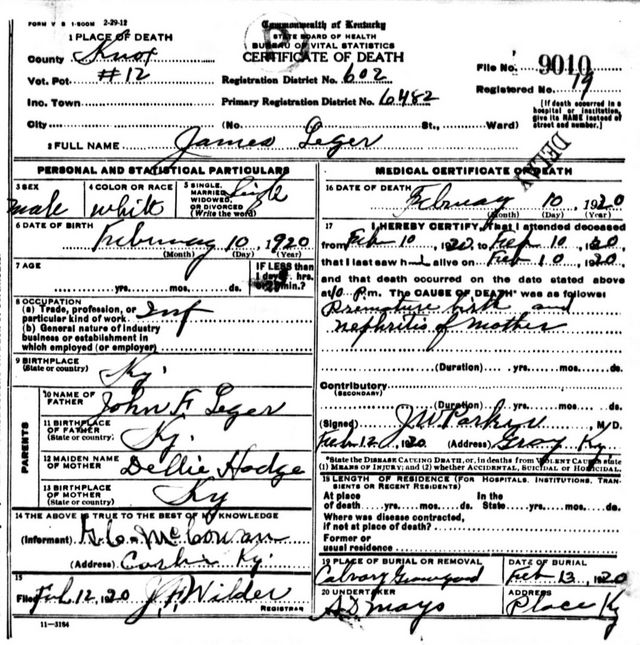 FORM V S 1-500M 2-29-12
Commonwealth of Kentucky
STATE BOARD OF HEALTH
BUREAU OF VITAL STATISTICS
CERTIFICATE OF DEATH
1 PLACE OF DEATH
County Knox
Vot. Pct #12
Inc. Town
City
Registration District No. 602
Primary Registration District No. 6482
(No. St., Ward)
File No. 9010
Registered No. 19
[If death occurred in a hospital or institution, give its NAME instead of street and number.]
2 FULL NAME James Leger
DELAY
PERSONAL AND STATISTICAL PARTICULARS
3 SEX male
4 COLOR OR RACE white
5 SINGLE, MARRIED, WIDOWED, OR DIVORCED (Write the word) Single
6 DATE OF BIRTH February 10, 1920
(Month) (Day) (Year)
7 AGE
yrs. mos. ds.
IF LESS than 1 day, hrs. or min.?
8 OCCUPATION
(a) Trade, profession, or particular kind of work Inf
(b) General nature of industry business or establishment in which employed (or employer)
9 BIRTHPLACE (State or country) Ky.
PARENTS
10 NAME OF FATHER John F Leger
11 BIRTHPLACE OF FATHER (State or country) Ky.
12 MAIDEN NAME OF MOTHER Dellie Hodge
13 BIRTHPLACE OF MOTHER (State or country) Ky
14 THE ABOVE IS TRUE TO THE BEST OF MY KNOWLEDGE
(Informant) McCowan
(Address) Ky.
15
Filed Feb 12, 1920 Wilder
REGISTRAR
11-3184
MEDICAL CERTIFICATE OF DEATH
16 DATE OF DEATH February 10, 1920
(Month) (Day) (Year)
17 I HEREBY CERTIFY, that I attended deceased
from Feb 10, 1920, to Feb 10, 1920,
that I last saw h alive on Feb 10, 1920,
and that death occurred on the date stated above
at 10 P. m. The CAUSE OF DEATH* was as follows:
Premature birth and
nephritis of mother
(Duration) yrs. mos. ds.
Contributory
(SECONDARY)
(Duration) yrs. mos. ds.
(Signed) J W Parker, M.D.
Feb 12, 1920 (Address) Gray Ky
*State the DISEASE CAUSING DEATH, or, in deaths from VIOLENT CAUSES state
(1) MEANS OF INJURY; and (2) whether ACCIDENTAL, SUICIDAL or HOMICIDAL.
18 LENGTH OF RESIDENCE (FOR HOSPITALS, INSTITUTIONS, TRANSIENTS OR RECENT RESIDENTS)
At place of death yrs. mos. ds. In the State yrs. mos. ds.
Where was disease contracted,
if not at place of death?
Former or
usual residence
19 PLACE OF BURIAL OR REMOVAL Calvary Graveyard
DATE OF BURIAL Feb 13, 1920
20 UNDERTAKER Mays
ADDRESS Place Ky